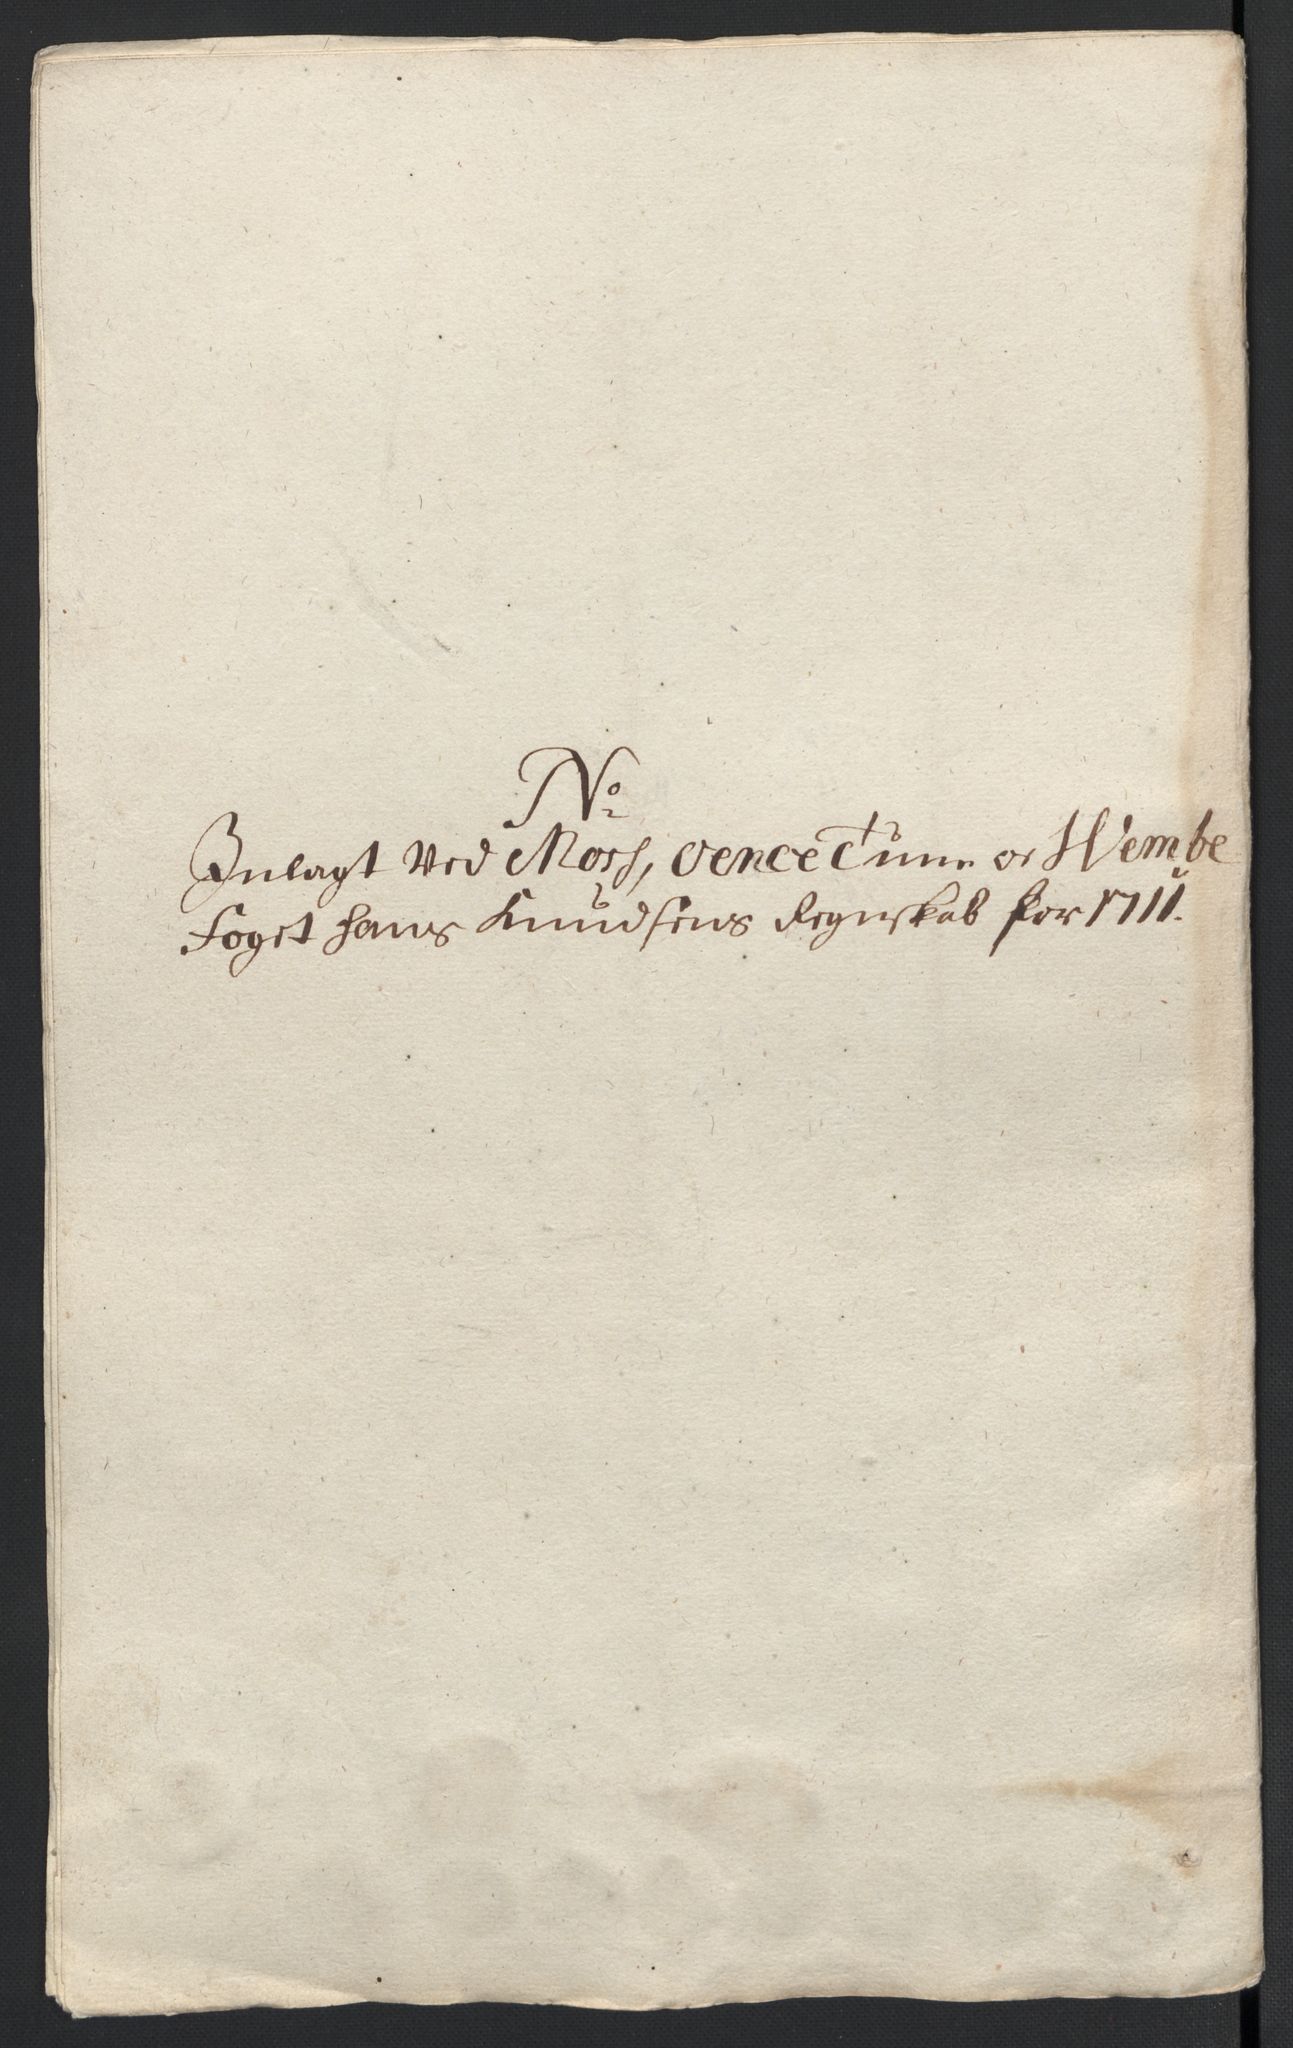 No
Inlagt Ved Moss, Oence Tune og Wembe
foget Hans Knudsens Regnskab for 1711.